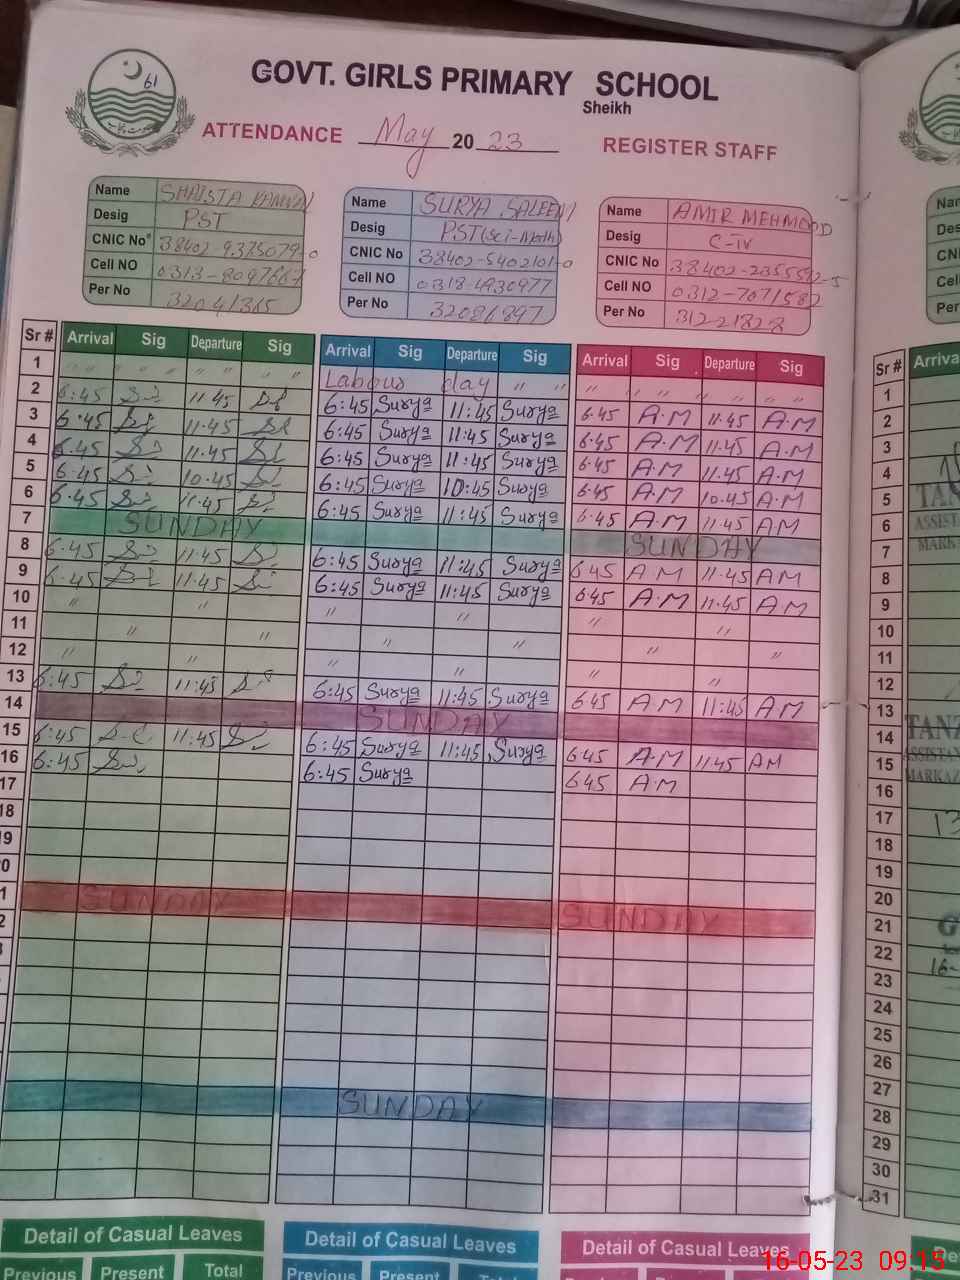 61
GOVT. GIRLS PRIMARY SCHOOL
Sheikh
ATTENDANCE May 2023 REGISTER STAFF
Name SHAISTA
Desig PST
CNIC No 38402-9375079-0
Cell NO 0313-8097667
Per No 32041365
Name SURYA SALEEM
Desig PST(Sci-Math)
CNIC No 38402-5402101-0
Cell NO 0318-4930977
Per No 32086897
Name AMIR MEHMOOD
Desig C-IV
CNIC No 38402-2355592-5
Cell NO 0312-7071582
Per No 31221828
Sr # Arrival Sig Departure Sig Arrival Sig Departure Sig Arrival Sig Departure Sig
1 " " " " " " " Labour day " " " " " " " "
2 6:45 11:45 6:45 Surya 11:45 Surya 6:45 A.M 11:45 A.M
3 6:45 11:45 6:45 Surya 11:45 Surya 6:45 A.M 11:45 A.M
4 6:45 11:45 6:45 Surya 11:45 Surya 6:45 A.M 11:45 A.M
5 6:45 10:45 6:45 Surya 10:45 Surya 6:45 A.M 10:45 A.M
6 6:45 11:45 6:45 Surya 11:45 Surya 6:45 A.M 11:45 AM
7 SUNDAY SUNDAY
8 6:45 11:45 6:45 Surya 11:45 Surya 6 45 A M 11:45 A M
9 6:45 11:45 6:45 Surya 11:45 Surya 6:45 A.M 11:45 A M
10 " " " " " "
11 " " " " " "
12 " " " " " "
13 6:45 11:45 6:45 Surya 11:45 Surya 6:45 A M 11:45 A M
14 SUNDAY
15 6:45 11:45 6:45 Surya 11:45 Surya 6:45 A.M 11:45 AM
16 6:45 6:45 Surya 6:45 A.M
17
18
19
20
21 SUNDAY SUNDAY
22
SUNDAY
Detail of Casual Leaves Detail of Casual Leaves Detail of Casual Leaves
Previous Present Total Previous Present
Sr # Arriva
1
2
3
4
5
6
7
8
9
10
11
12
13
14
15
16
17
18
19
20
21
22
23
24
25
26
27
28
29
30
31
TAN
ASSIST
MARK
TANZ
ASSISTAN
MARKAZ
13
16-
16-05-23 09:15